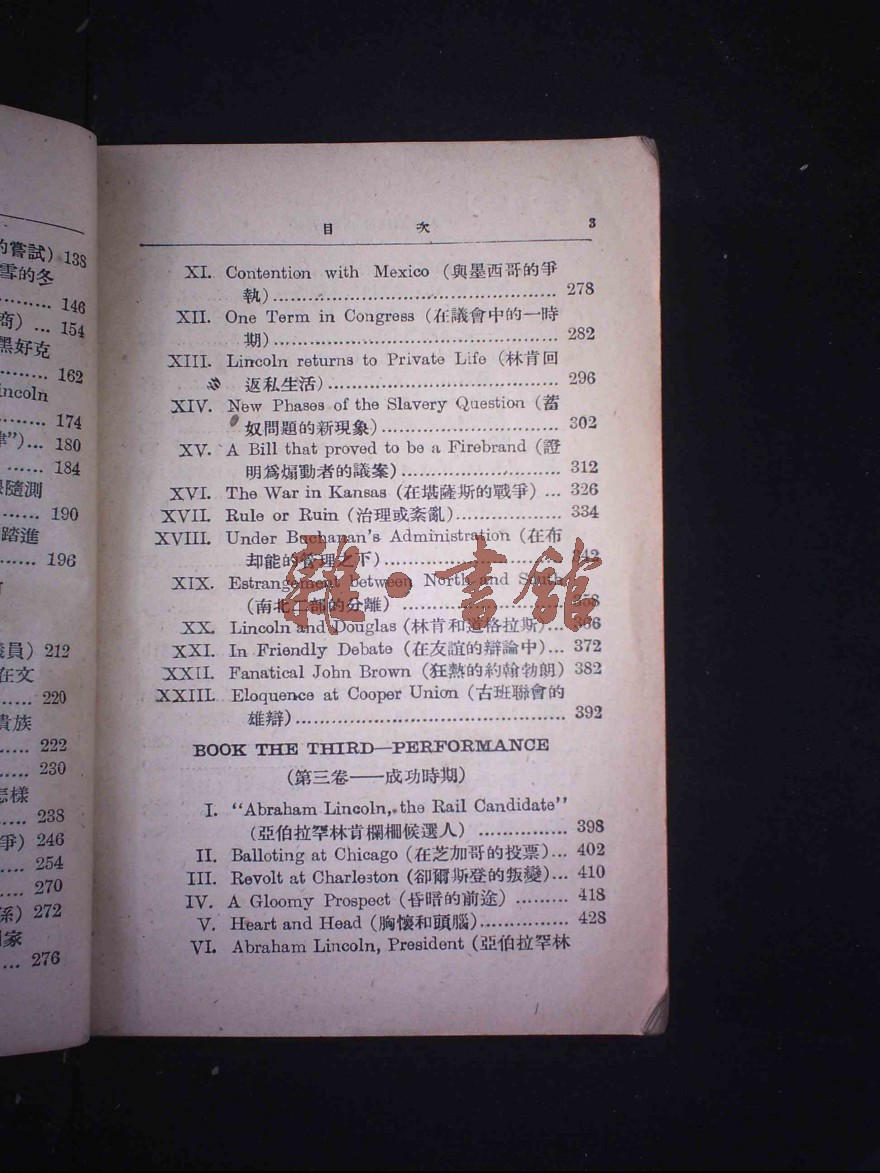 的嘗試) 138
雪的冬
......... 146
商) ... 154
黑好克
......... 162
incoln
......... 174
津”)... 180
...... 184
隨測
......... 190
踏進
......... 196
議員) 212
在文
...... 220
貴族
...... 222
...... 230
怎樣
...... 238
爭) 246
...... 254
.... 270
係) 272
國家
... 276
目 次 3
XI. Contention with Mexico (與墨西哥的爭
執)................................................ 278
XII. One Term in Congress (在議會中的一時
期)................................................ 282
XIII. Lincoln returns to Private Life (林肯回
返私生活)....................................... 296
XIV. New Phases of the Slavery Question (蓄
奴問題的新現象).............................. 302
XV. A Bill that proved to be a Firebrand (證
明爲煽動者的議案)........................... 312
XVI. The War in Kansas (在堪薩斯的戰爭) ... 326
XVII. Rule or Ruin (治理或紊亂).................. 334
XVIII. Under Buchanan's Administration (在布
却能的管理之下).............................. 342
XIX. Estrangement between North and South
(南北二部的分離) ........................... 358
XX. Lincoln and Douglas (林肯和道格拉斯)... 366
XXI. In Friendly Debate (在友誼的辯論中)... 372
XXII. Fanatical John Brown (狂熱的約翰勃朗) 382
XXIII. Eloquence at Cooper Union (古班聯會的
雄辯)............................................. 392
BOOK THE THIRD—PERFORMANCE
(第三卷——成功時期)
I. “Abraham Lincoln, the Rail Candidate”
(亞伯拉罕林肯欄柵候選人) ............... 398
II. Balloting at Chicago (在芝加哥的投票)... 402
III. Revolt at Charleston (卻爾斯登的叛變)... 410
IV. A Gloomy Prospect (昏暗的前途) ......... 418
V. Heart and Head (胸懷和頭腦)............... 428
VI. Abraham Lincoln, President (亞伯拉罕林
雜·書館